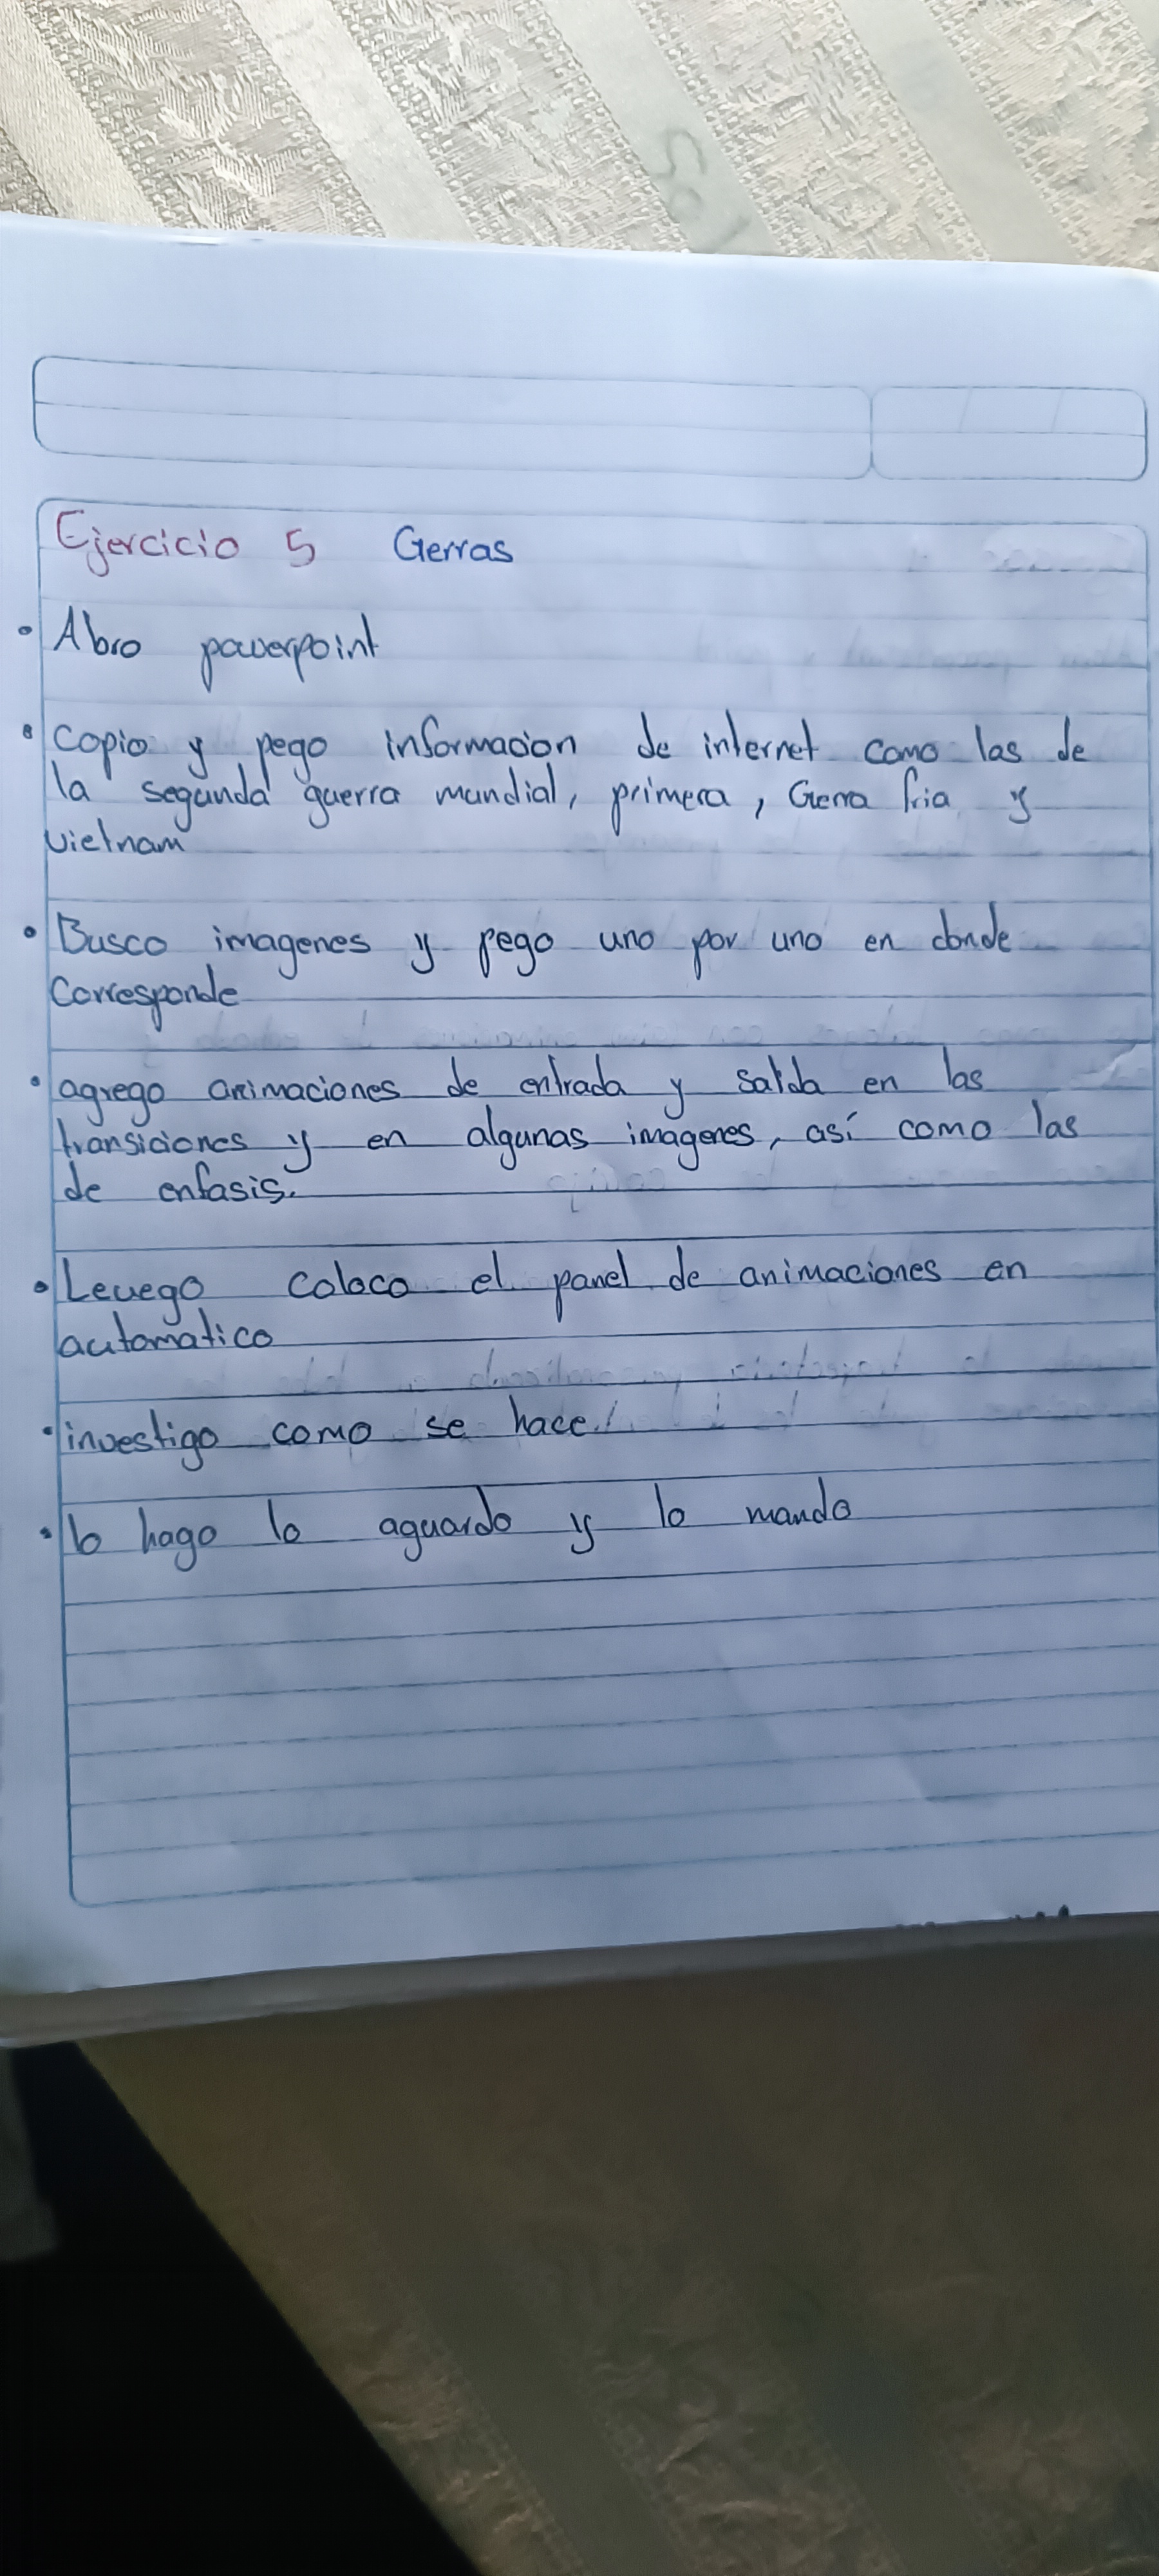 Ejercicio 5 Gerras
• Abro powerpoint
• copio y pego informacion de internet como las de
la segunda guerra mundial, primera, Gerra fria y
vietnam
• Busco imagenes y pego uno por uno en donde
Corresponde
• agrego animaciones de entrada y salida en las
transiciones y en algunas imagenes, así como las
de enfasis.
• Leuego coloco el panel de animaciones en
automatico
• investigo como se hace.
• lo hago lo aguardo y lo mando